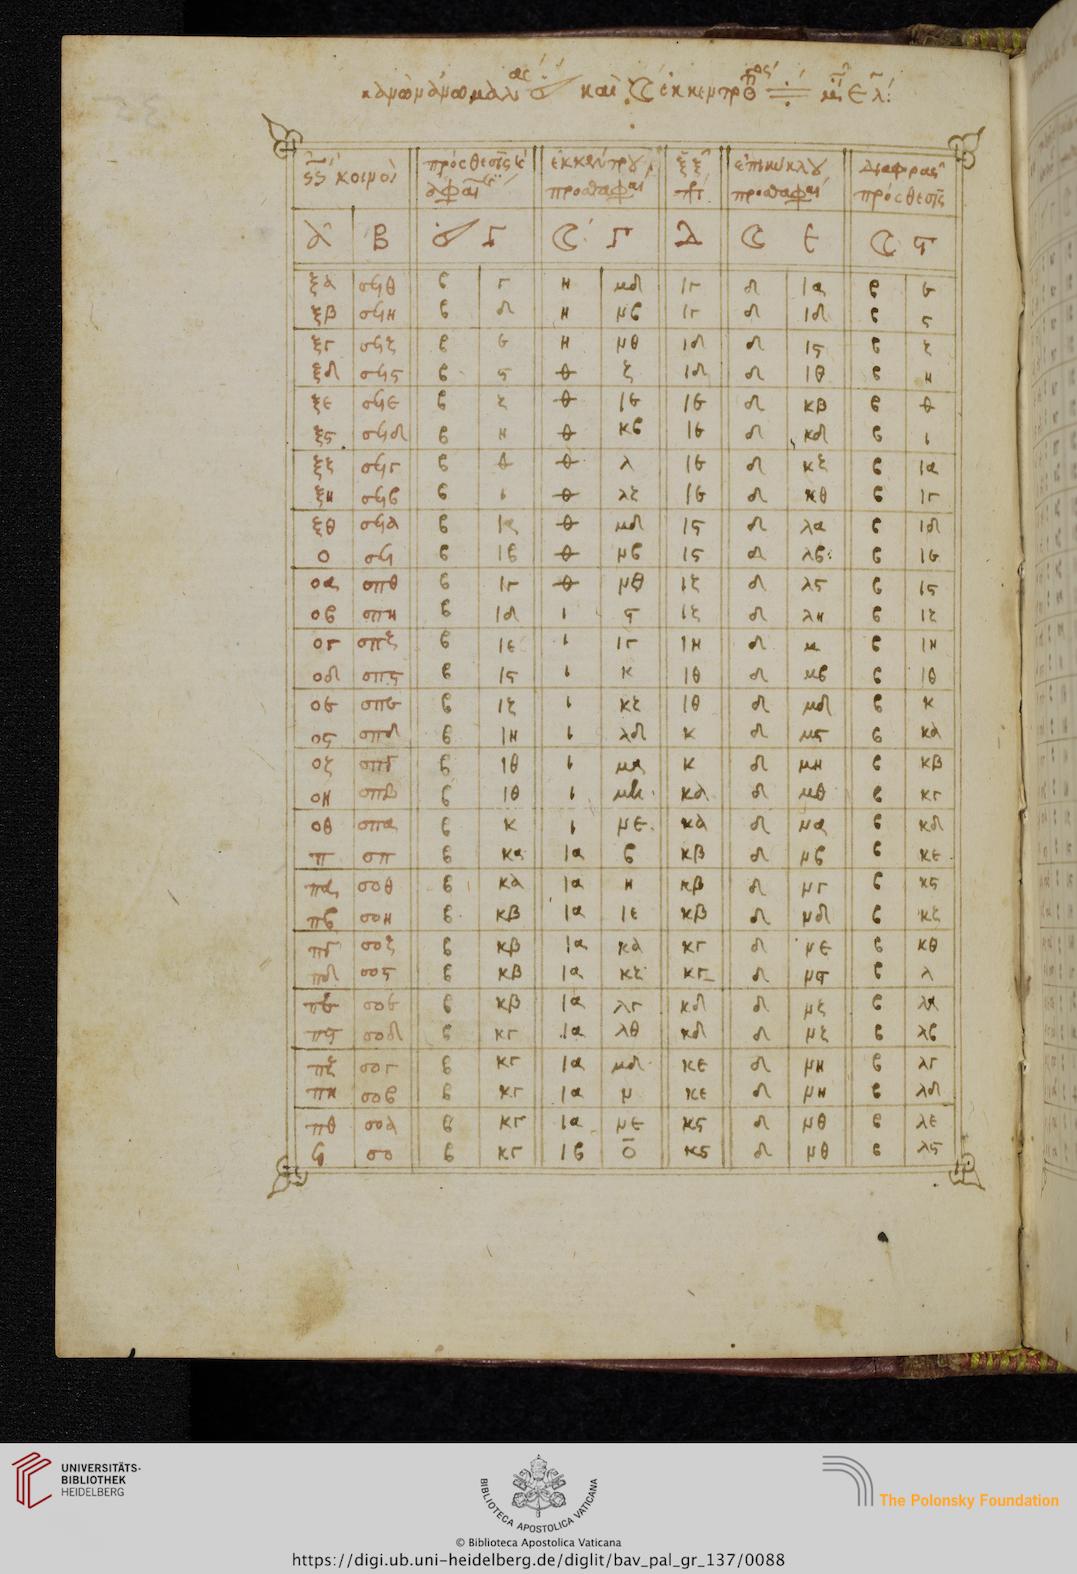 κοινοὶ
πρόσθεσις
ἐκκέντρου
ἐπικύκλου
πρόσθεσις
α β ☾ γ δ ☾ ε ☾ ϛ
ξα σϟθ β γ η μδ ιγ δ ια β ε
ξβ σϟη β δ η μϛ ιγ δ ιδ β ϛ
ξγ σϟζ β ε η μθ ιδ δ ιϛ β ζ
ξδ σϟϛ β ϛ θ ζ ιδ δ ιθ β η
ξε σϟε β ζ θ ιε ιε δ κβ β θ
ξϛ σϟδ β η θ κβ ιε δ κδ β ι
ξζ σϟγ β θ θ λ ιε δ κζ β ια
ξη σϟβ β ι θ λζ ιε δ κθ β ιγ
ξθ σϟα β ια θ μδ ιϛ δ λα β ιδ
ο σϟ β ιβ θ μβ ιϛ δ λβ β ιε
οα σπθ β ιγ θ μθ ιζ δ λϛ β ιϛ
οβ σπη β ιδ ι ϛ ιζ δ λη β ιζ
ογ σπζ β ιε ι ιγ ιη δ μ β ιη
οδ σπϛ β ιϛ ι κ ιθ δ μβ β ιθ
οε σπε β ιζ ι κζ ιθ δ μδ β κ
οϛ σπδ β ιη ι λδ κ δ μϛ β κα
οζ σπγ β ιθ ι μα κ δ μη β κβ
οη σπβ β ιθ ι μη κα δ μθ β κγ
οθ σπα β κ ι με κα δ μα β κδ
π σπ β κα ια β κβ δ μβ β κε
πα σοθ β κα ια η κβ δ μγ β κϛ
πβ σοη β κβ ια ιε κβ δ μδ β κζ
πγ σοζ β κβ ια κα κγ δ με β κθ
πδ σοϛ β κβ ια κζ κγ δ μϛ β λ
πε σοε β κβ ια λγ κδ δ μζ β λα
πϛ σοδ β κγ ια λθ κδ δ μζ β λβ
πζ σογ β κγ ια μδ κε δ μη β λγ
πη σοβ β κγ ια μ κε δ μη β λδ
πθ σοα β κγ ια με κϛ δ μθ β λε
ϟ σο β κγ ιβ ο κϛ δ μθ β λϛ
UNIVERSITÄTS-
BIBLIOTHEK
HEIDELBERG
BIBLIOTECA APOSTOLICA VATICANA
The Polonsky Foundation
© Biblioteca Apostolica Vaticana
https://digi.ub.uni-heidelberg.de/diglit/bav_pal_gr_137/0088